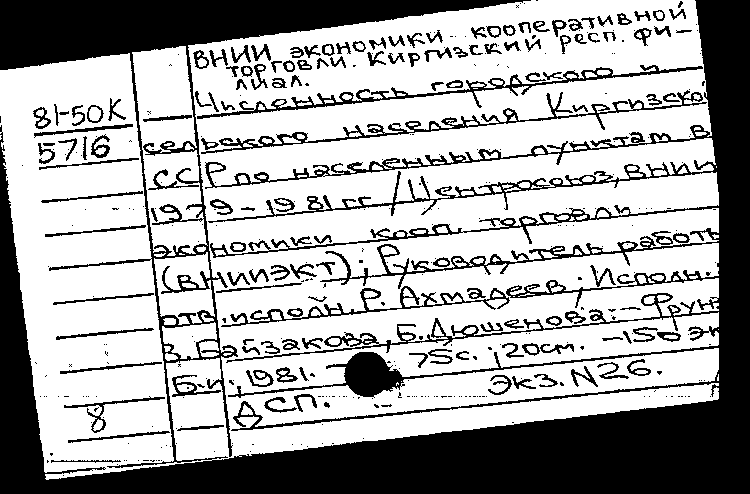 ВНИИ экономики кооперативной
торговли. Киргизский респ. фи-
лиал.
81-50К
Численность городского и
5716
сельского населения Киргизской
ССР по населенным пунктам в
1979-1981 гг. / Центросоюз, ВНИИ
экономики кооп. торговли
(ВНИИЭКТ); Руководитель работы
отв. исполн. Р. Ахмадеев; Исполн.:
З. Байзакова, Б. Дюшенова. - Фрунз
Б.и., 1981. - 75с.; 20см. - 150 эк
8
ДСП. Экз. N26.